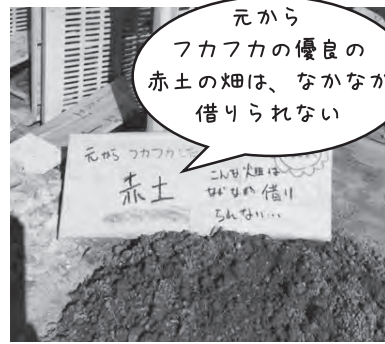 元から
フカフカの優良の
赤土の畑は、なかなか
借りられない
元から フカフカした
赤土
こんな畑は
なかなか借り
られない…